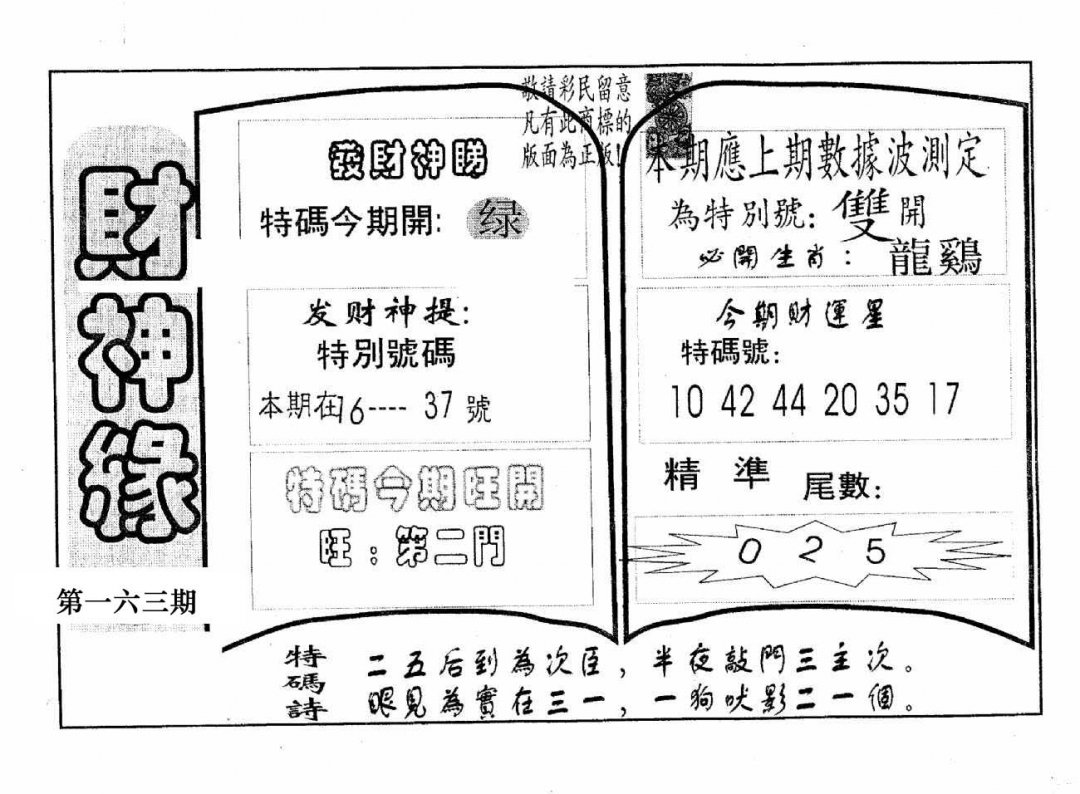 財神緣
第一六三期
敬請彩民留意
凡有此商標的
版面為正版!
發財神睇
特碼今期開: 绿
发财神提:
特別號碼
本期在16---- 37號
特碼今期旺開
旺:第二門
本期應上期數據波測定
為特別號: 雙開
必開生肖: 龍鷄
今期財運星
特碼號:
10 42 44 20 35 17
精準 尾數:
0 2 5
特碼詩
二五后到為次臣,半夜敲門三主次。
眼見為實在三一,一狗吠影二一個。